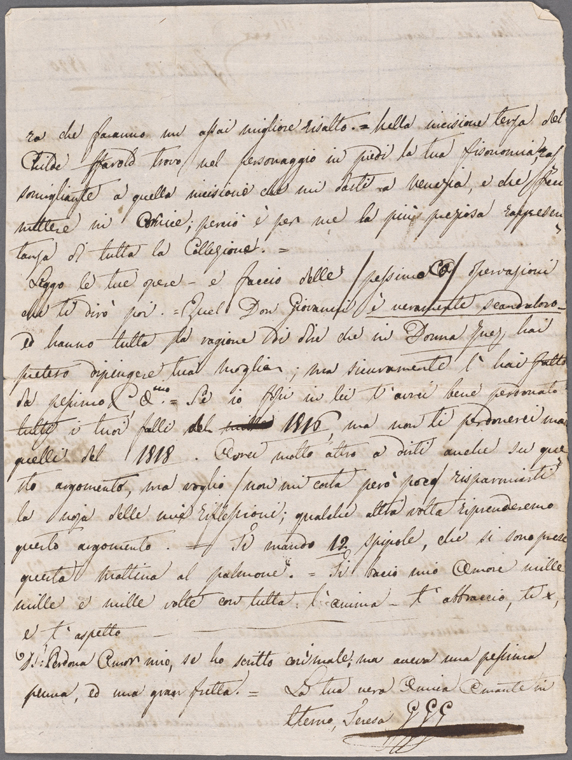 ra che faranno un assai migliore risalto. = nella incisione terza del
Childe Harold trovo nel personaggio in piedi la tua fisonomia
somigliante a quella incisione che mi desti a Venezia, e che feci
mettere in Cornice; perciò è per me la più preziosa rappresen
tanza di tutta la Collezione. =
Leggo le tue opere – e faccio delle /pessime/ osservazioni
che ti dirò poi. = Quel Don Giovanni è veramente scandaloso –
ed hanno tutta la ragione di dire che in Donna Inez hai
preteso dipingere tua moglie, ma sicuramente l'hai fatto
da pessimo = Se io fossi in lei t'avrei bene perdonato
tutti i tuoi falli del 1816, ma non ti perdonerei mai
quelli del 1818. Avrei molto altro a dirti anche su que
sto argomento, ma voglio (non mi costa però poco) risparmiarti
la noja delle mie riflessioni; qualche altra volta riprenderemo
questo argomento. Ti mando 12 spipole, che si sono prese
questa mattina al palmone. = Ti bacio mio Amore mille
mille e mille volte con tutta l'anima – t'abbraccio, te x,
e t'aspetto
Perdona Amor mio, se ho scritto così male, ma aveva una pessima
penna, ed una gran fretta. = La tua vera Amica Amante in
Eterno, Teresa GGG